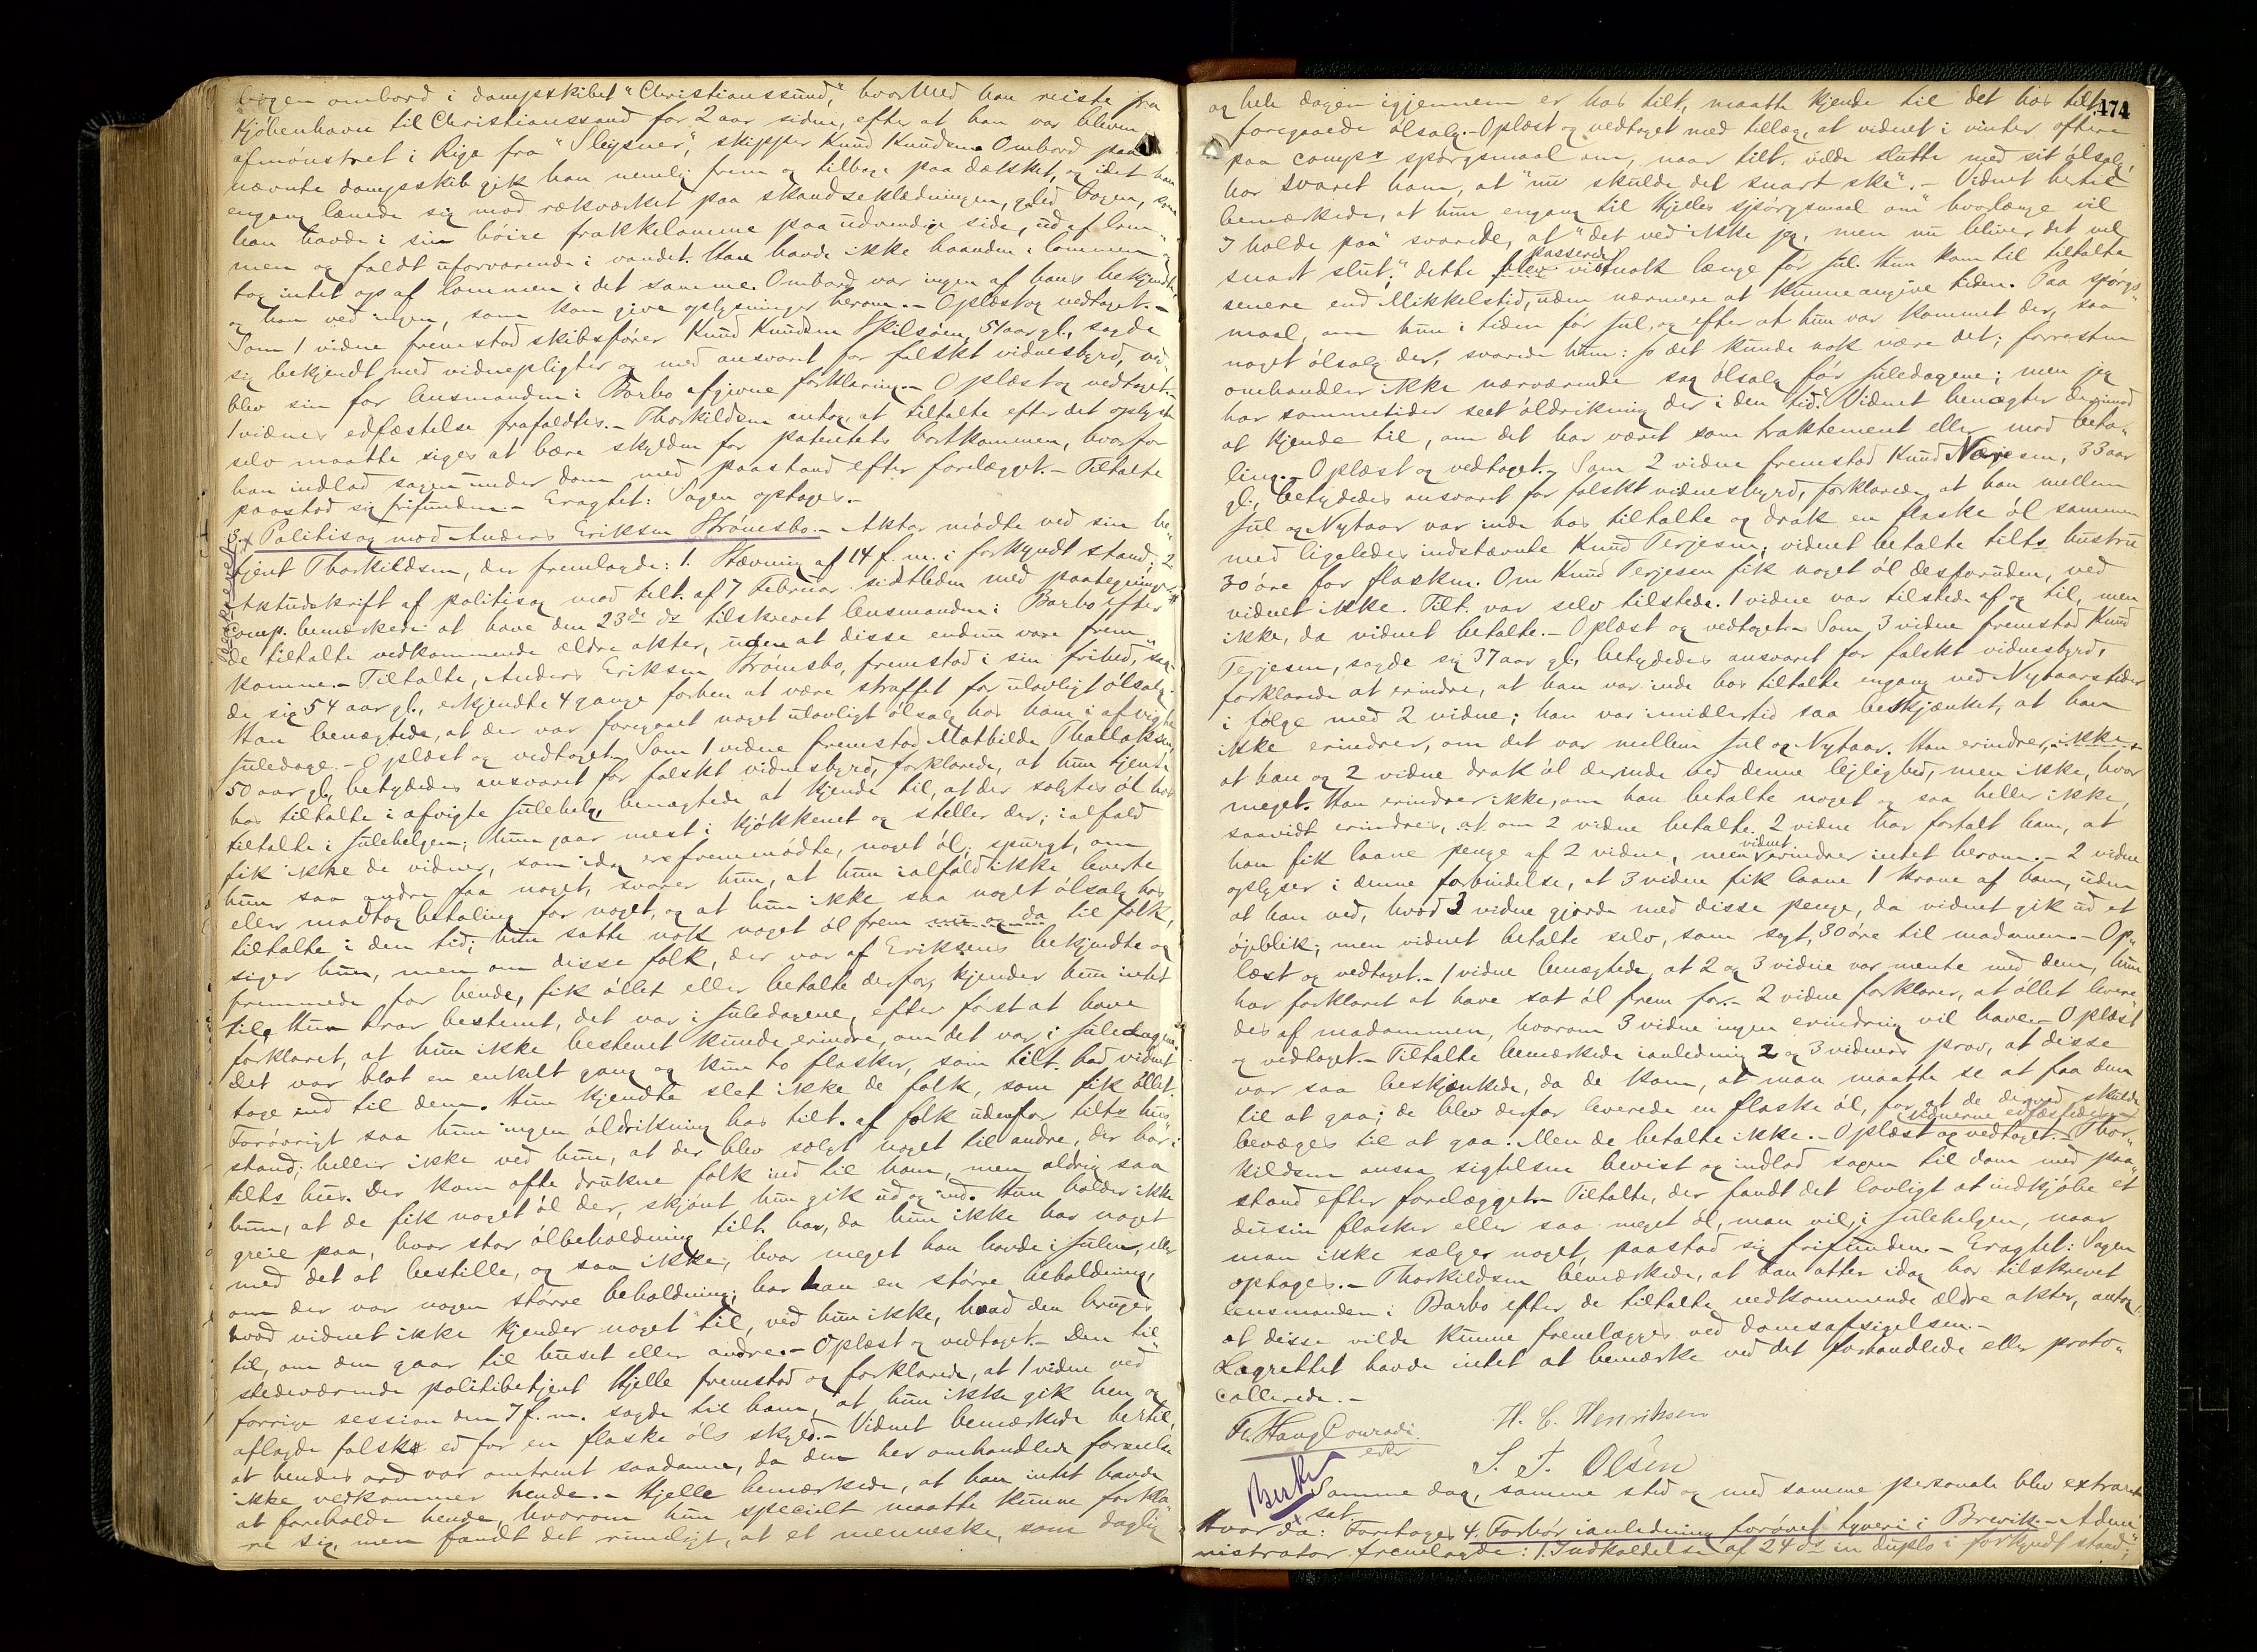 bogen ombord i dampskibet "Christianssund", hvormed han reiste fra
Kjøbenhavn til Christianssand for 2 aar siden, efter at han var bleven
afmønstret i Riga fra "Sleipner", skipper Knud Knudsen. Ombord paa
nævnte dampskib gik han nemlig frem og tilbage paa dækket, og idet han
engang lænede sig mod rækværket paa skandseklædningen, gled bogen, som
han havde i sin høire frakkelomme paa udvendige side, ud af lom-
men og faldt uforvarende i vandet. Han havde ikke haanden i lommen og
tog intet op af lommen i det samme. Ombord var ingen af hans bekjendte,
og han ved ingen, som kan give oplysninger herom. - Oplæst og vedtaget. -
Som 1 vidne fremstod skibsfører Knud Knudsen Skilsøen, 51 aar gl., sagde
sig bekjendt med vidnepligten og med ansvaret for falskt vidnesbyrd, ved-
blev sin for lensmanden i Barbo afgivne forklaring. - Oplæst og vedtaget. -
1 vidnes edfæstelse frafaldtes. - Thorkildsen antog, at tiltalte efter det oplyste
selv maatte siges at bære skylden for patentets bortkommen, hvorfor
han indlod sagen under dom med paastand efter forelægget. - Tiltalte
paastod sig frifunden. - Eragtet: Sagen optages. -
3. Politisag mod Anders Eriksen Strømsbo. - Aktor mødte ved sin be-
tjent Thorkildsen, der fremlagde: 1. Stævning af 14 f. m. i forkyndt stand; 2
Aktudskrift af politisag mod tilt. af 7 Februar sidstleden med paategninger.
Comp. bemærkede at have den 23de ds tilskrevet lensmanden i Barbo efter
de tiltalte vedkommende ældre akter, uden at disse endnu vare frem-
komne. - Tiltalte, Anders Eriksen Strømsbo, fremstod i sin frihed, sag-
de sig 54 aar gl., erkjendte 4 gange forhen at være straffet for ulovligt ølsalg.
Han benægtede, at der var foregaaet noget ulovligt ølsalg hos ham i afvigte
juledage. - Oplæst og vedtaget. - Som 1 vidne fremstod Mathilde Thollaksen,
50 aar gl., betydedes ansvaret for falskt vidnesbyrd, forklarede, at hun tjente
hos tiltalte i afvigte julehelg, benægtede at kjende til, at der solgtes øl hos
tiltalte i julehelgen; hun gaar mest i kjøkkenet og steller der; ialfald
fik ikke de vidner, som idag er fremmødte, noget øl; spurgt, om
hun saa andre faa noget, svarer hun, at hun ialfald ikke leverte
eller modtog betaling for noget, og at hun ikke saa noget ølsalg hos
tiltalte i den tid; hun satte nok noget øl frem nu og da til folk,
siger hun, men om disse folk, der var af Eriksens bekjendte og
fremmede for hende, fik øllet eller betalte derfor, kjender hun intet
til. Hun tror bestemt, det var i juledagene, efter først at have
forklaret, at hun ikke bestemt kunde erindre, om det var i juledagene.
Det var blot en enkelt gang og kun to flasker, som tilt. bad vidnet
tage ind til dem. Hun kjendte slet ikke de folk, som fik øllet.
Forøvrigt saa hun ingen øldrikning hos tilt. af folk udenfor tilts hus-
stand; heller ikke ved hun, at der blev solgt noget til andre, der bor i
tilts hus. Der kom ofte drukne folk ind til ham, men aldrig saa
hun, at de fik noget øl der, skjønt hun gik ud og ind. Hun holder ikke
greie paa, hvor stor ølbeholdning tilt. har, da hun ikke har noget
med det at bestille, og saa ikke, hvor meget han havde i julen, eller
om der var nogen større beholdning; har han en større beholdning,
hvad vidnet ikke kjender noget til, ved hun ikke, hvad den bruges
til, om den gaar til huset eller andre. - Oplæst og vedtaget. - Den til-
stedeværende politibetjent Hjelle fremstod og forklarede, at 1 vidne ved
forrige session den 7 f. m. sagde til ham, at hun ikke gik hen og
aflagde falsk ed for en flaske øls skyld. - Vidnet bemærkede hertil,
at hendes ord var omtrent saadanne, da den her omhandlede forseelse
ikke vedkommer hende. - Hjelle bemærkede, at han intet havde
at foreholde hende, hvorom hun specielt maatte kunne forkla-
re sig, men fandt det rimeligt, at et menneske, som daglig
474
og hele dagen igjennem er hos tilt., maatte kjende til det hos tilt.
foregaaede ølsalg. - Oplæst og vedtaget med tillæg, at vidnet i vinter oftere
paa comps spørgsmaal om, naar tilt. vilde slutte med sit ølsalg,
har svaret ham, at "nu skulde det snart ske". - Vidnet hertil
bemærkede, at hun engang til Hjelles spørgsmaal om "hvorlænge vil
I holde paa" svarede, at "det ved ikke jeg, men nu bliver det vel
snart slut;" dette passerede vistnok længe før jul. Hun kom til tiltalte
senere end Mikkelstid, uden nærmere at kunne angive tiden. Paa spørgs-
maal, om hun i tiden før jul, og efter at hun var kommet der, saa
noget ølsalg der, svarede hun: Jo det kunde nok være det; forresten
omhandler ikke nærværende sag ølsalg før juledagene; men jeg
har sommetider seet øldrikning der i den tid. Vidnet benægter derimod
at kjende til, om det har været som traktement eller mod beta-
ling. - Oplæst og vedtaget. - Som 2 vidne fremstod Knud Nærjesen, 33 aar
gl., betydedes ansvaret for falskt vidnesbyrd, forklarede, at han mellem
jul og Nytaar var inde hos tiltalte og drak en flaske øl sammen
med ligeledes indstævnte Knud Terjesen; vidnet betalte tilts hustru
30 øre for flasken. Om Knud Terjesen fik noget øl desforuden, ved
vidnet ikke. Tilt. var selv tilstede. 1 vidne var tilstede af og til, men
ikke, da vidnet betalte. - Oplæst og vedtaget. - Som 3 vidne fremstod Knud
Terjesen, sagde sig 37 aar gl., betydedes ansvaret for falskt vidnesbyrd,
forklarede at erindre, at han var inde hos tiltalte engang ved Nytaarstider
i følge med 2 vidne; han var imidlertid saa beskjænket, at han
ikke erindrer, om det var mellem jul og Nytaar. Han erindrer ikke
at han og 2 vidne drak øl derinde ved denne leilighed, men ikke, hvor
meget. Han erindrer ikke, om han betalte noget og saa heller ikke,
saavidt erindres, at om 2 vidne betalte. 2 vidne har fortalt ham, at
han fik laane penge af 2 vidne, men vidnet erindrer intet herom. - 2 vidne
oplyser i denne forbindelse, at 3 vidne fik laane 1 krone af ham, uden
at han ved, hvad 3 vidne gjorde med disse penge, da vidnet gik ud et
øjeblik; men vidnet betalte selv, som sagt, 30 øre til madamen. - Op-
læst og vedtaget. - 1 vidne benægtede, at 2 og 3 vidne var mente med dem, hun
har forklaret at have sat øl frem for. - 2 vidne forklarer, at øllet levere-
des af madammen, hvorom 3 vidne ingen erindring vil have. - Oplæst
og vedtaget. - Tiltalte bemærkede ianledning 2 og 3 vidners prov, at disse
var saa beskjænkede, da de kom, at man maatte se at faa dem
til at gaa; de blev derfor leverede en flaske øl, for at de derved skulde
bevæges til at gaa. Men de betalte ikke. - Oplæst og vedtaget. - vidnerne edfæstedes. - Thor-
kildsen ansaa sigtelsen bevist og indlod sagen til dom med paa-
stand efter forelægget. - Tiltalte, der fandt det lovligt at indkjøbe et
dusin flasker eller saa meget øl, man vil, i julehelgen, naar
man ikke sælger noget, paastod sig frifunden. - Eragtet: Sagen
optages. - Thorkildsen bemærkede, at han atter idag har tilskrevet
lensmanden i Barbo efter de tiltalte vedkommende ældre akter, antog,
at disse vilde kunne fremlægges ved domsafsigelsen. -
Lagrettet havde intet at bemærke ved det forhandlede eller proto-
collerede. -
Fr. Haug Conradi. H. C. Henriksen
edler S. T. Olsen
Samme dag, samme sted og med samme personale blev extraret
set.
Hvor da: Foretages 4. Forhør ianledning forøvet tyveri i Brevik. - Admi-
nistrator fremlagde: 1. Indkaldelse af 24 ds in duplo i forkyndt stand;